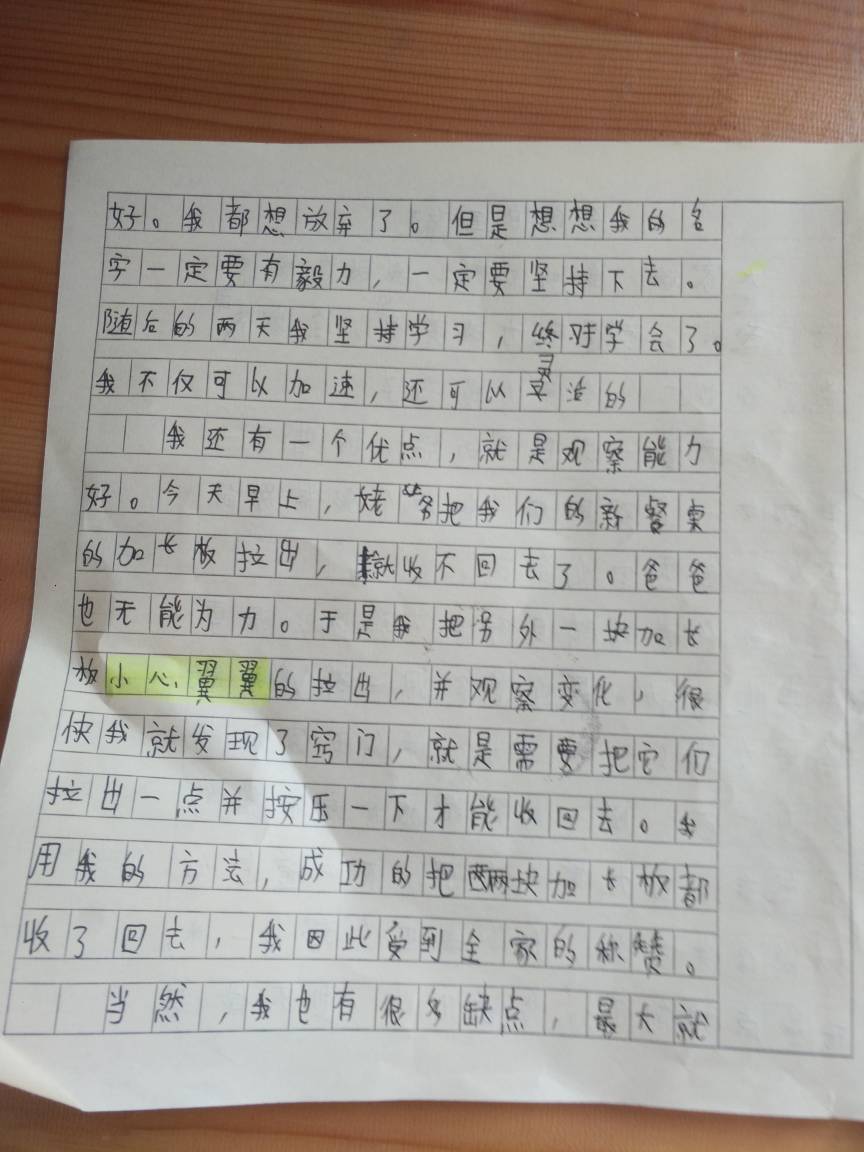 好。我都想放弃了。但是想想我的名
字一定要有毅力，一定要坚持下去。
随后的两天我坚持学习，终对学会了。
我不仅可以加速，还可以灵活的
我还有一个优点，就是观察能力
好。今天早上，姥爷把我们的新餐桌
的加长板拉出，就收不回去了。爸爸
也无能为力。于是我把另外一块加长
板小心翼翼的拉出，并观察变化，很
快我就发现了窍门，就是需要把它们
拉出一点并按压一下才能收回去。我
用我的方法，成功的把两块加长板都
收了回去，我因此受到全家的称赞。
当然，我也有很多缺点，最大就